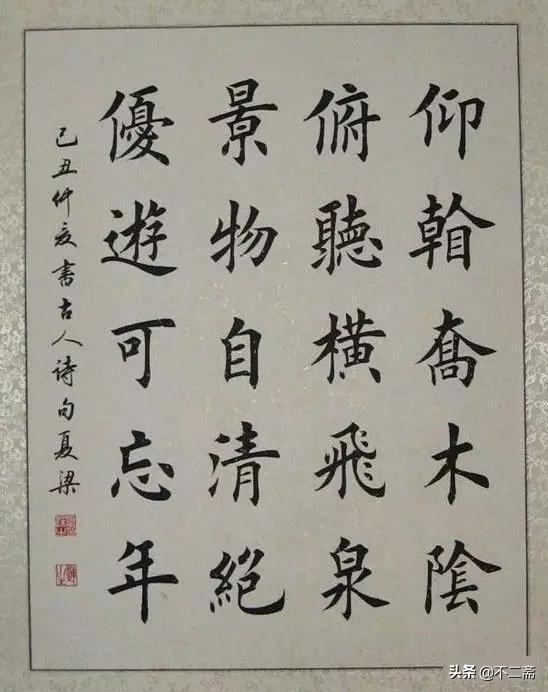 仰喬木陰
俯聽橫飛泉
景物自清絕
優遊可忘年
己丑仲夏書古人诗句夏梁
头条 @不二斋